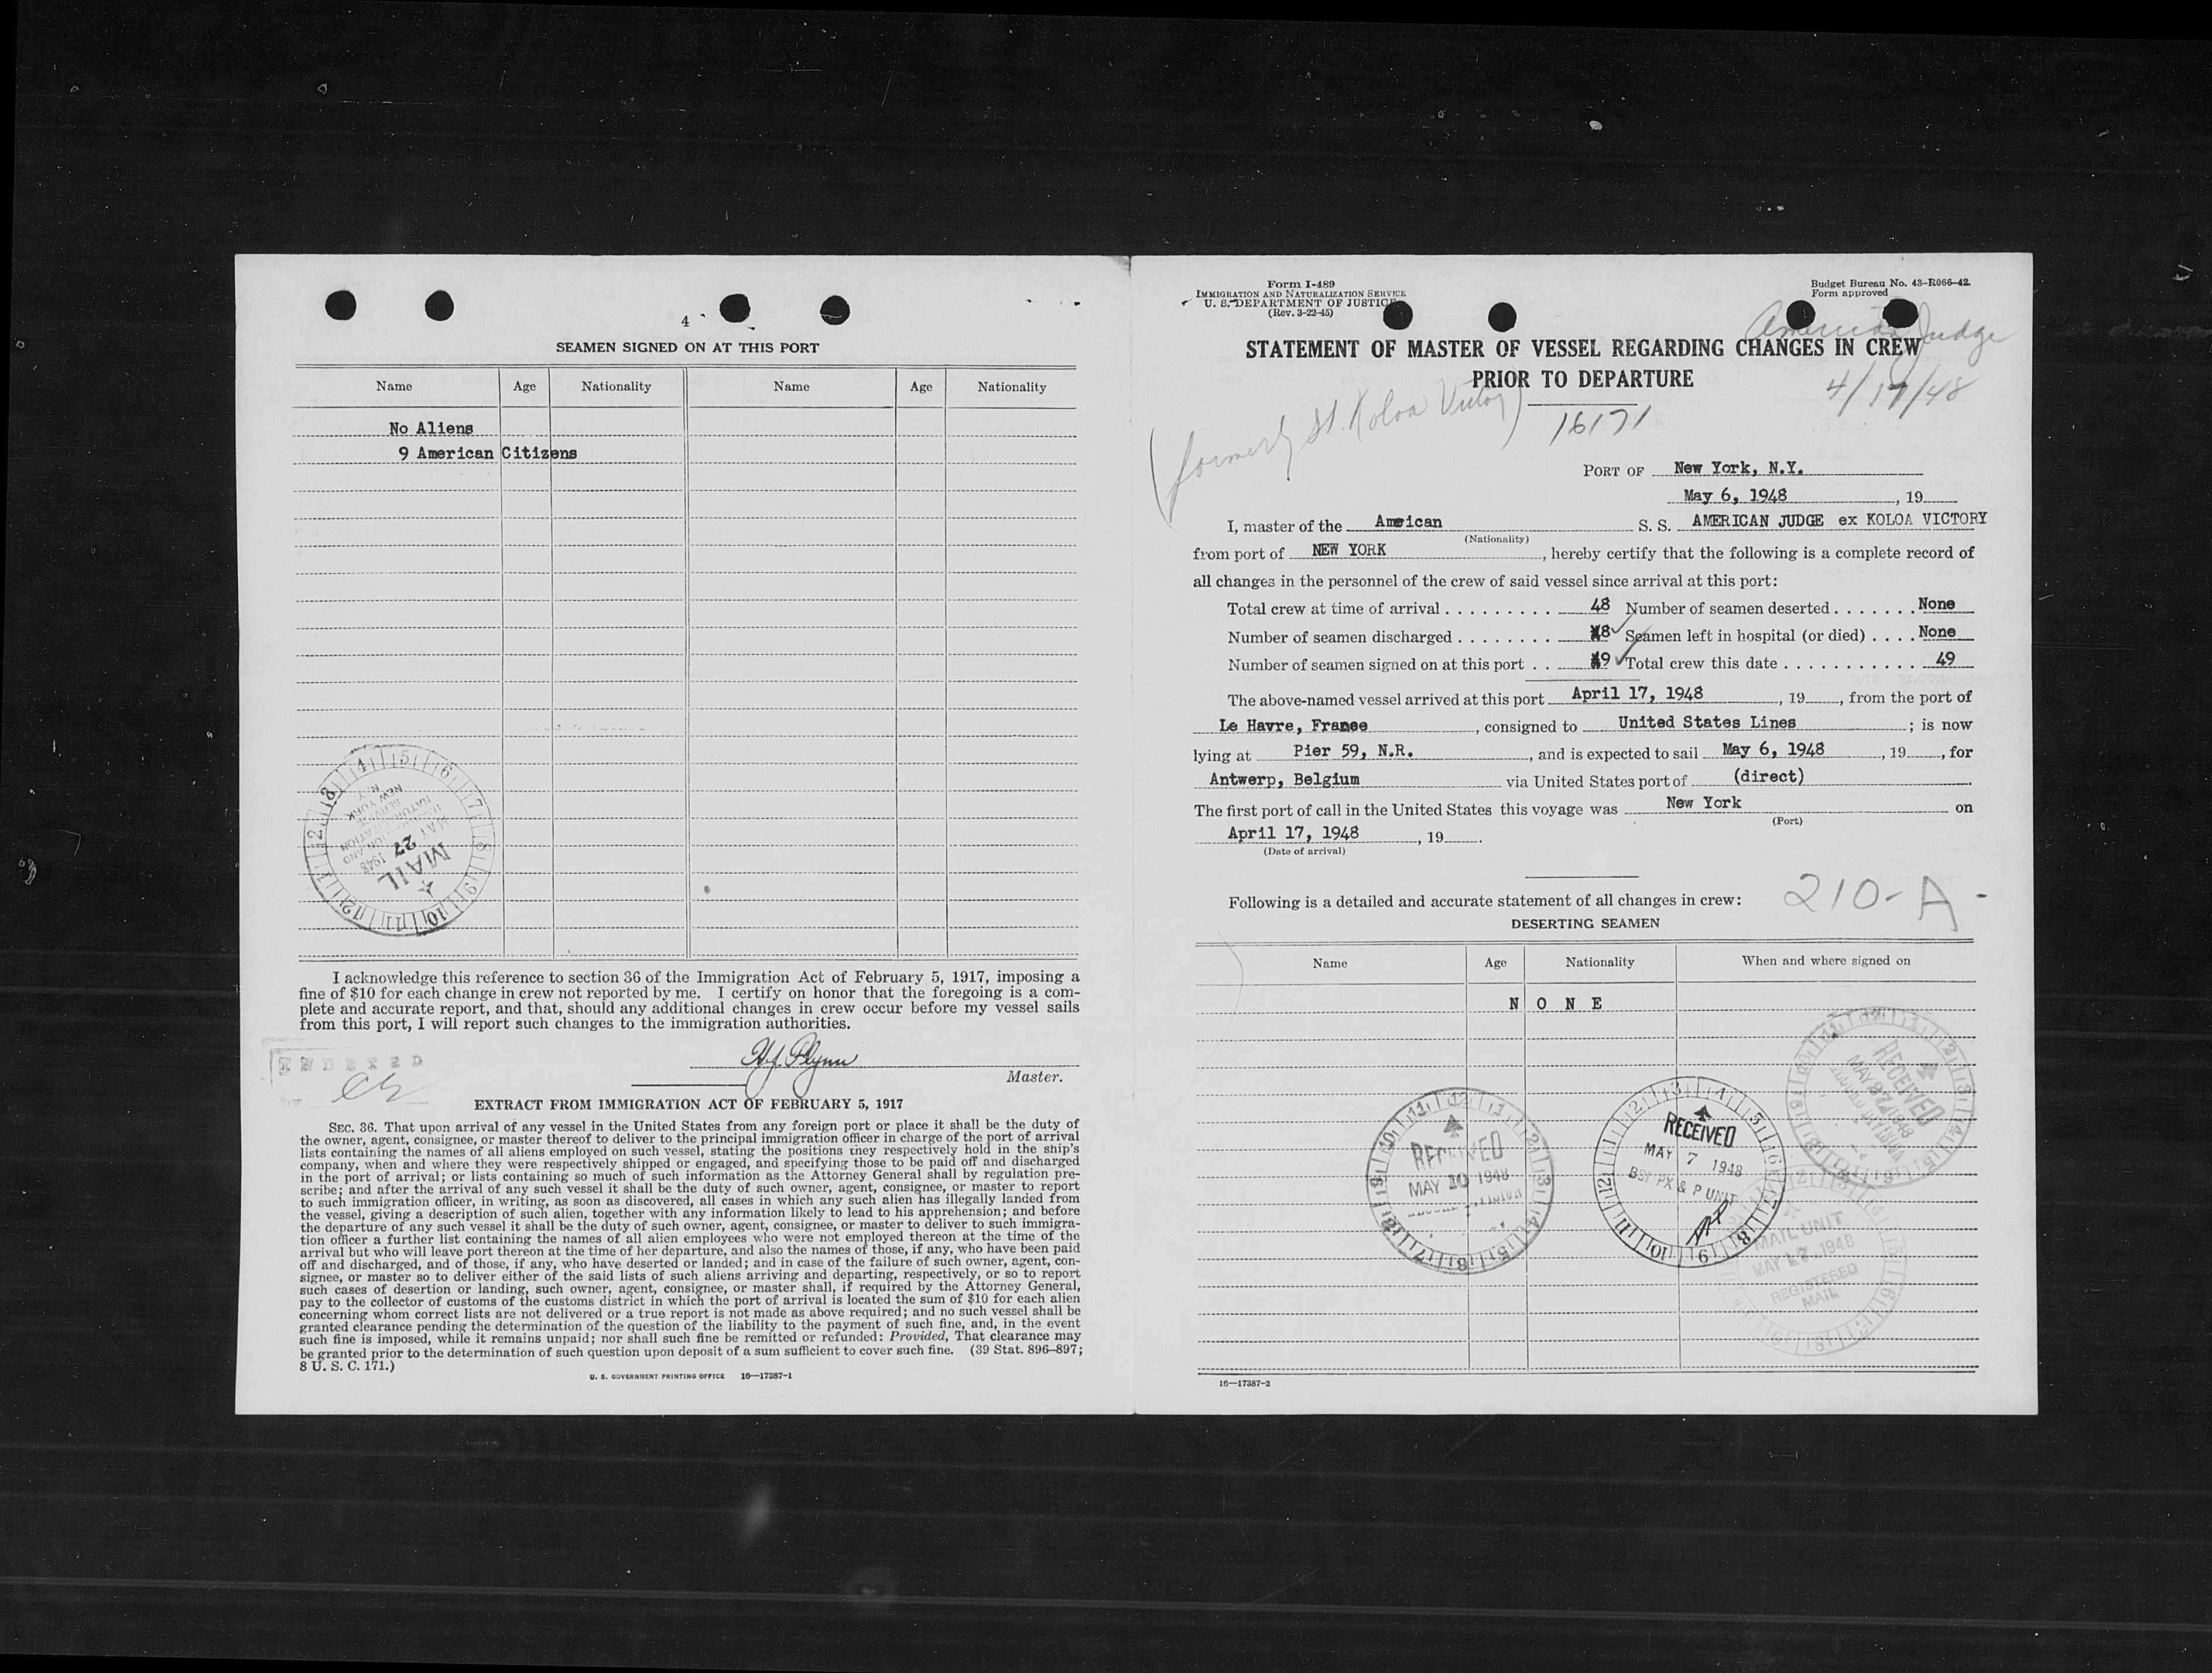 4
SEAMEN SIGNED ON AT THIS PORT
Name Age Nationality Name Age Nationality
No Aliens
9 American Citizens
MAIL
MAY 27 1948
NEW YORK
N. Y.
I acknowledge this reference to section 36 of the Immigration Act of February 5, 1917, imposing a
fine of $10 for each change in crew not reported by me. I certify on honor that the foregoing is a com-
plete and accurate report, and that, should any additional changes in crew occur before my vessel sails
from this port, I will report such changes to the immigration authorities.
INDEXED
H.J. Flynn
Master.
EXTRACT FROM IMMIGRATION ACT OF FEBRUARY 5, 1917
SEC. 36. That upon arrival of any vessel in the United States from any foreign port or place it shall be the duty of
the owner, agent, consignee, or master thereof to deliver to the principal immigration officer in charge of the port of arrival
lists containing the names of all aliens employed on such vessel, stating the positions they respectively hold in the ship's
company, when and where they were respectively shipped or engaged, and specifying those to be paid off and discharged
in the port of arrival; or lists containing so much of such information as the Attorney General shall by regulation pre-
scribe; and after the arrival of any such vessel it shall be the duty of such owner, agent, consignee, or master to report
to such immigration officer, in writing, as soon as discovered, all cases in which any such alien has illegally landed from
the vessel, giving a description of such alien, together with any information likely to lead to his apprehension; and before
the departure of any such vessel it shall be the duty of such owner, agent, consignee, or master to deliver to such immigra-
tion officer a further list containing the names of all alien employees who were not employed thereon at the time of the
arrival but who will leave port thereon at the time of her departure, and also the names of those, if any, who have been paid
off and discharged, and of those, if any, who have deserted or landed; and in case of the failure of such owner, agent, con-
signee, or master so to deliver either of the said lists of such aliens arriving and departing, respectively, or so to report
such cases of desertion or landing, such owner, agent, consignee, or master shall, if required by the Attorney General,
pay to the collector of customs of the customs district in which the port of arrival is located the sum of $10 for each alien
concerning whom correct lists are not delivered or a true report is not made as above required; and no such vessel shall be
granted clearance pending the determination of the question of the liability to the payment of such fine, and, in the event
such fine is imposed, while it remains unpaid; nor shall such fine be remitted or refunded: Provided, That clearance may
be granted prior to the determination of such question upon deposit of a sum sufficient to cover such fine. (39 Stat. 896–897;
8 U. S. C. 171.)
U. S. GOVERNMENT PRINTING OFFICE 16—17387-1
Form I-489
IMMIGRATION AND NATURALIZATION SERVICE
U. S. DEPARTMENT OF JUSTICE
(Rev. 3-22-45)
Budget Bureau No. 43-R066-42.
Form approved
American Judge
STATEMENT OF MASTER OF VESSEL REGARDING CHANGES IN CREW
PRIOR TO DEPARTURE
4/17/48
(formerly St. Koloa Victory)
16171
PORT OF New York, N.Y.
May 6, 1948, 19
I, master of the Ameican S. S. AMERICAN JUDGE ex KOLOA VICTORY
(Nationality)
from port of NEW YORK, hereby certify that the following is a complete record of
all changes in the personnel of the crew of said vessel since arrival at this port:
Total crew at time of arrival . . . . . . . . . 48 Number of seamen deserted . . . . . . . None
Number of seamen discharged . . . . . . . . 8 Seamen left in hospital (or died) . . . . None
Number of seamen signed on at this port . . 9 Total crew this date . . . . . . . . . . . 49
The above-named vessel arrived at this port April 17, 1948, 19, from the port of
Le Havre, France, consigned to United States Lines; is now
lying at Pier 59, N.R., and is expected to sail May 6, 1948, 19, for
Antwerp, Belgium via United States port of (direct)
The first port of call in the United States this voyage was New York on
(Port)
April 17, 1948, 19.
(Date of arrival)
Following is a detailed and accurate statement of all changes in crew: 210-A-
DESERTING SEAMEN
Name Age Nationality When and where signed on
N O N E
RECEIVED
MAY 27 1948
RECEIVED
MAY 10 1948
RECEIVED
MAY 7 1948
BSI PX & P UNIT
MAIL UNIT
MAY 27 1948
REGISTERED
MAIL
16—17387-2